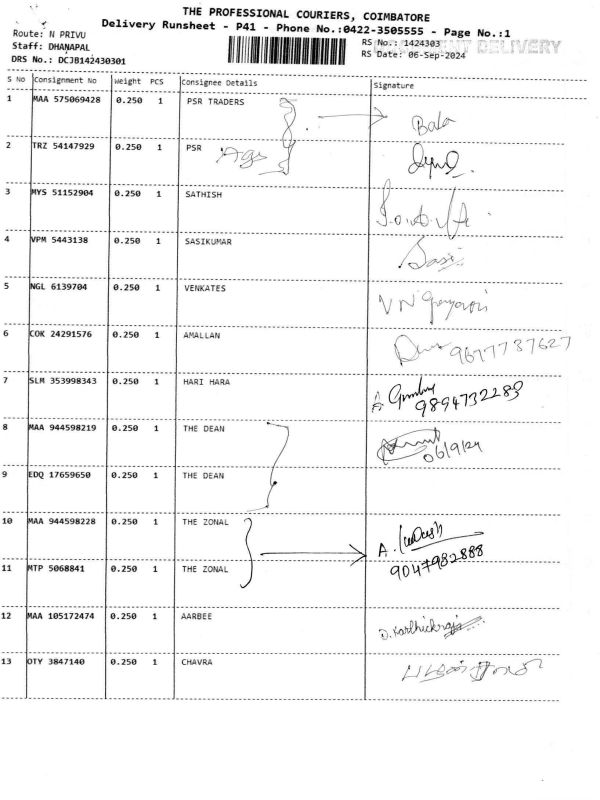 THE PROFESSIONAL COURIERS, COIMBATORE
Delivery Runsheet - P41 - Phone No.:0422-3505555 - Page No.:1
Route: N PRIVU
Staff: DHANAPAL
DRS No.: DCJB142430301
RS No.: 1424303
RS Date: 06-Sep-2024
DELIVERY
S No Consignment No Weight PCS Consignee Details Signature
1 MAA 575069428 0.250 1 PSR TRADERS Bala
2 TRZ 54147929 0.250 1 PSR Ags
3 MYS 51152904 0.250 1 SATHISH
4 VPM 5443138 0.250 1 SASIKUMAR Sasi
5 NGL 6139704 0.250 1 VENKATES VN
6 COK 24291576 0.250 1 AMALLAN 9677737627
7 SLM 353998343 0.250 1 HARI HARA 9894732283
8 MAA 944598219 0.250 1 THE DEAN 06/9/24
9 EDQ 17659650 0.250 1 THE DEAN
10 MAA 944598228 0.250 1 THE ZONAL A.
11 MTP 5068841 0.250 1 THE ZONAL 9047982888
12 MAA 105172474 0.250 1 AARBEE D. Karthickraja
13 OTY 3847140 0.250 1 CHAVRA